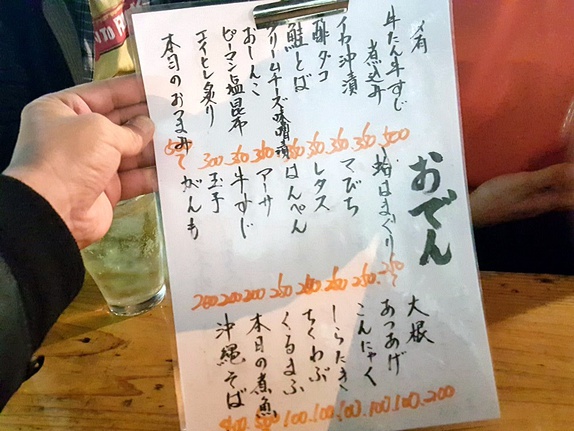 牛たん牛すじ
煮込み
イカ沖漬
酢ダコ
鮭とば
クリームチーズ味噌漬
おしんこ
ピーマン塩昆布
エイヒレ炙り
本日のおつまみ
500
350
350
350
350
350
300
おでん
蛤はまぐり
マびち
レタス
はんぺん
アーサ
牛すじ
玉子
がんも
250
250
250
280
250
200
200
200
大根
あつあげ
こんにゃく
しらたき
ちくわぶ
くるまふ
本日の煮魚
沖縄そば
200
100
100
100
100
100
500
500